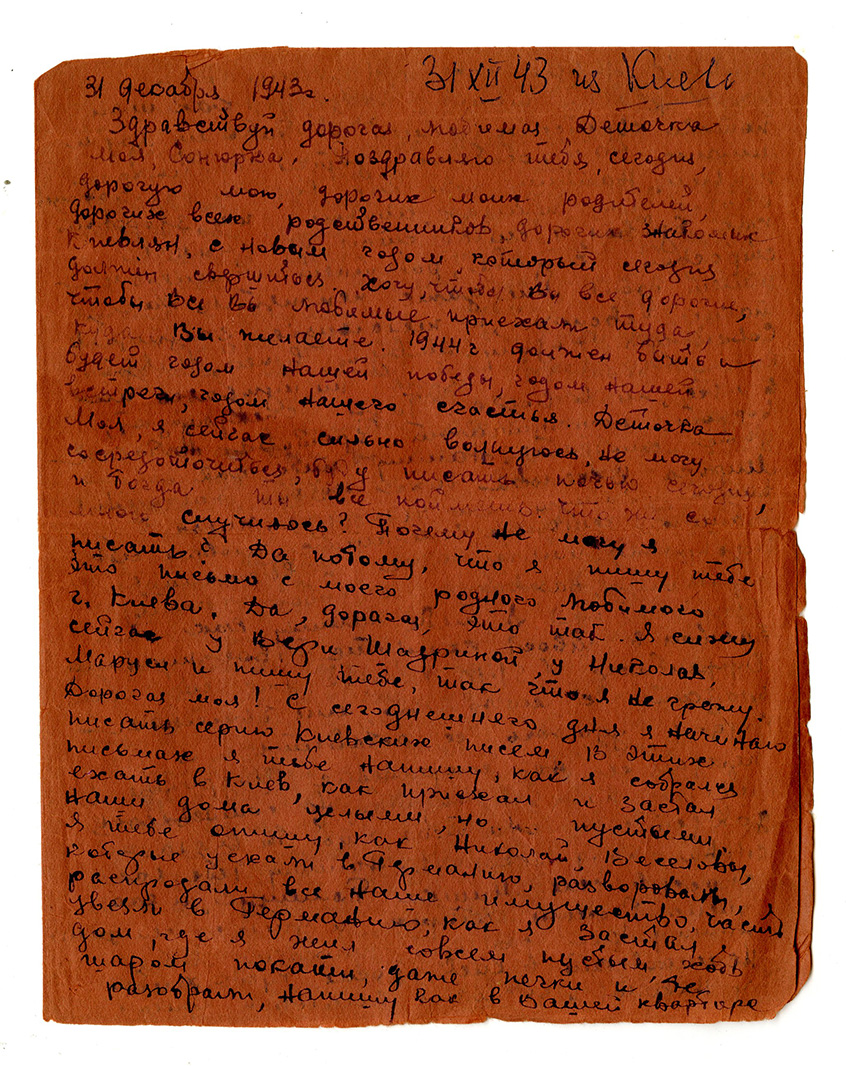 31 декабря 1943г. 31 XII 43 из Киева
Здравствуй дорогая, любимая Деточка
моя, Сонюрка. Поздравляю тебя, сегодня,
дорогую мою, дорогих моих родителей,
дорогих всех родственников, дорогих знакомых
Киевлян, с новым годом который сегодня
должен свершиться. Хочу, чтобы Вы все дорогие,
чтобы Все Вы любимые приехали туда,
куда Вы желаете. 1944г должен быть и
будет годом нашей победы, годом нашей
встречи, годом нашего счастья. Деточка
моя, я сейчас сильно волнуюсь, не могу
сосредоточиться, буду писать ночью сегодня,
и тогда ты все поймешь. Что же со
мной случилось? Почему не могу я
писать? Да потому, что я пишу тебе
это письмо с моего родного любимого
г. Киева. Да, дорогая, это так. Я сижу
сейчас у Веры, у Николая,
Маруси и пишу тебе, так что я не грежу.
Дорогая моя! С сегоднешнего дня я начинаю
писать серию Киевских писем. В этих
письмах я тебе напишу, как я собрался
ехать в Киев, как приехал и застал
наши дома целыми, но пустыми,
я тебе опишу, как Николай, Веселовы,
которые уехали в Германию, разворовали,
распродали все наше имущество, часть
увезли в Германию, как я застал
дом, где я жил совсем пустым, хоть
шаром покати, даже печки и те
разобрали, напишу как в Вашей квартире